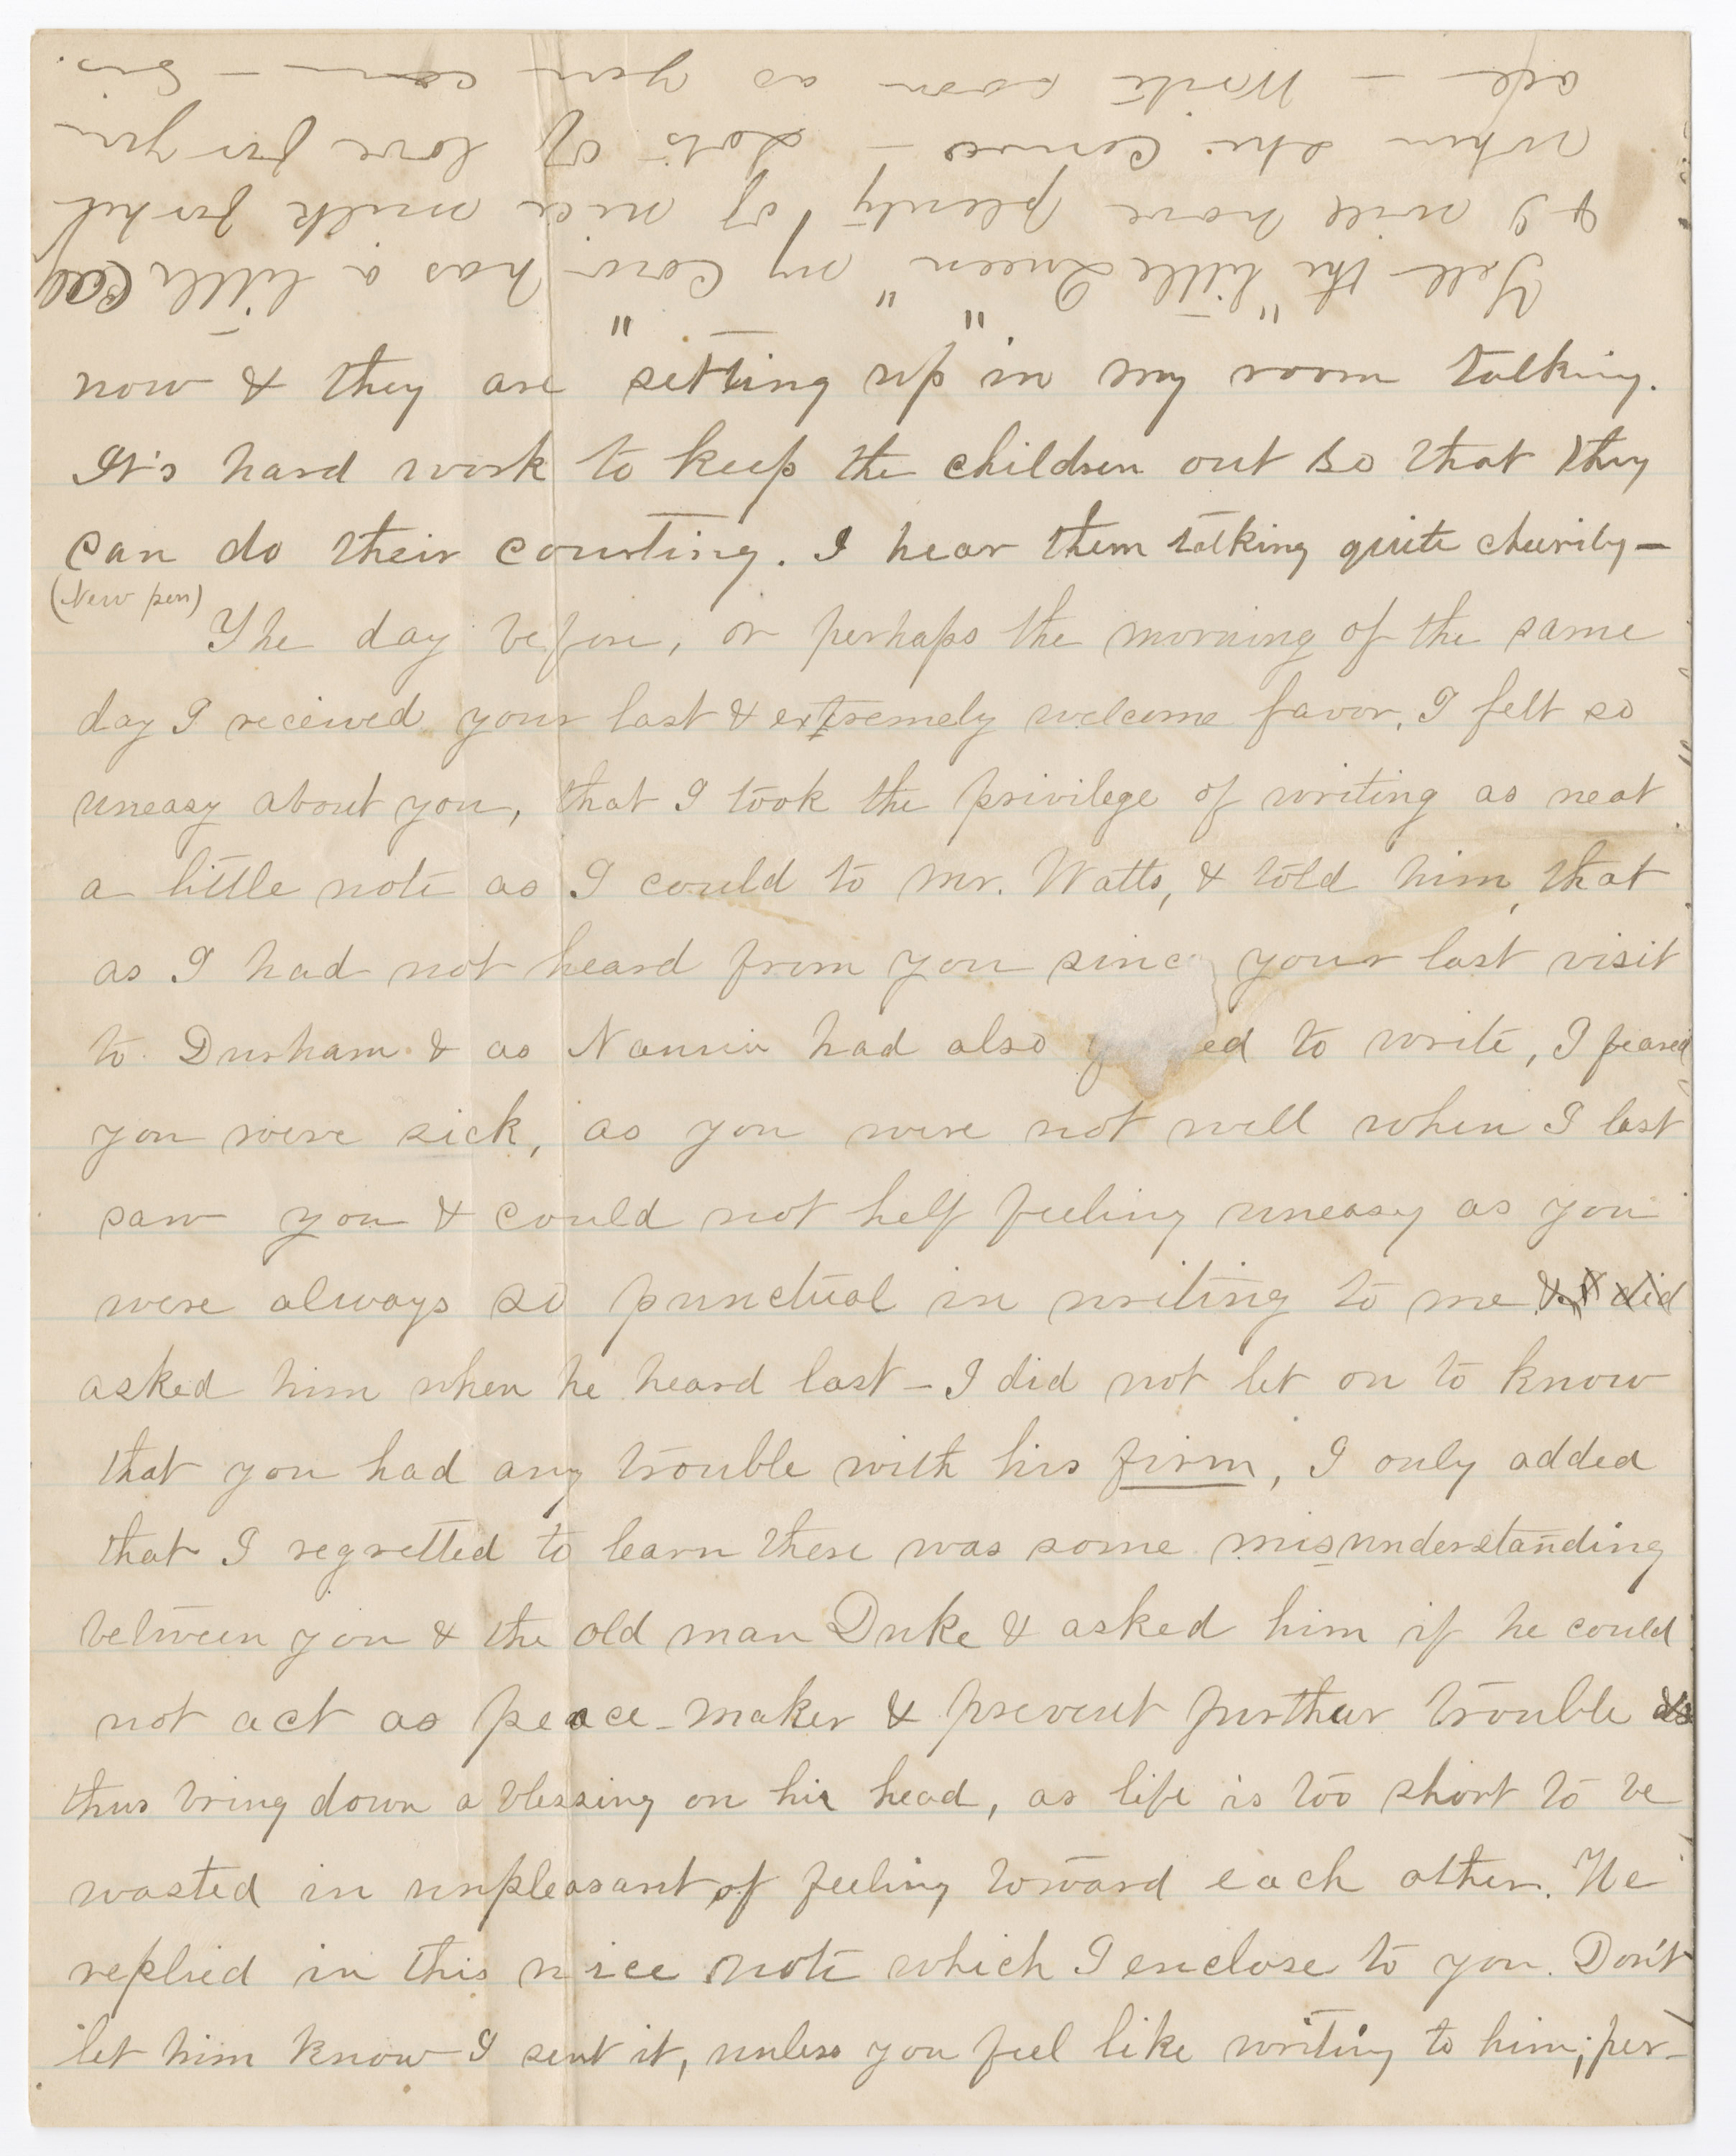 Tell the "little Queen" my cow has a little calf
& I will have plenty of nice milk for her
when she comes – Lots of love for you
all – Write soon as you can – Sis.
now & they are "setting up" in my room talking.
It's hard work to keep the children out so that they
can do their courting. I hear them talking quite cheerily –
(New pen)
The day before, or perhaps the morning of the same
day I received your last & extremely welcome favor, I felt so
uneasy about you, that I took the privilege of writing as neat
a little note as I could to Mr. Watts, & told him, that
as I had not heard from you since your last visit
to Durham & as Nannie had also ed to write, I feared
you were sick, as you were not well when I last
saw you & could not help feeling uneasy as you
were always so punctual in writing to me & I did
asked him when he heard last – I did not let on to know
that you had any trouble with his firm, I only added
that I regretted to learn there was some misunderstanding
between you & the old man Duke & asked him if he could
not act as peace-maker & prevent further trouble &
thus bring down a blessing on his head, as life is too short to be
wasted in unpleasant of feeling toward each other. He
replied in this nice note which I enclose to you. Don't
let him know I sent it, unless you feel like writing to him; per-